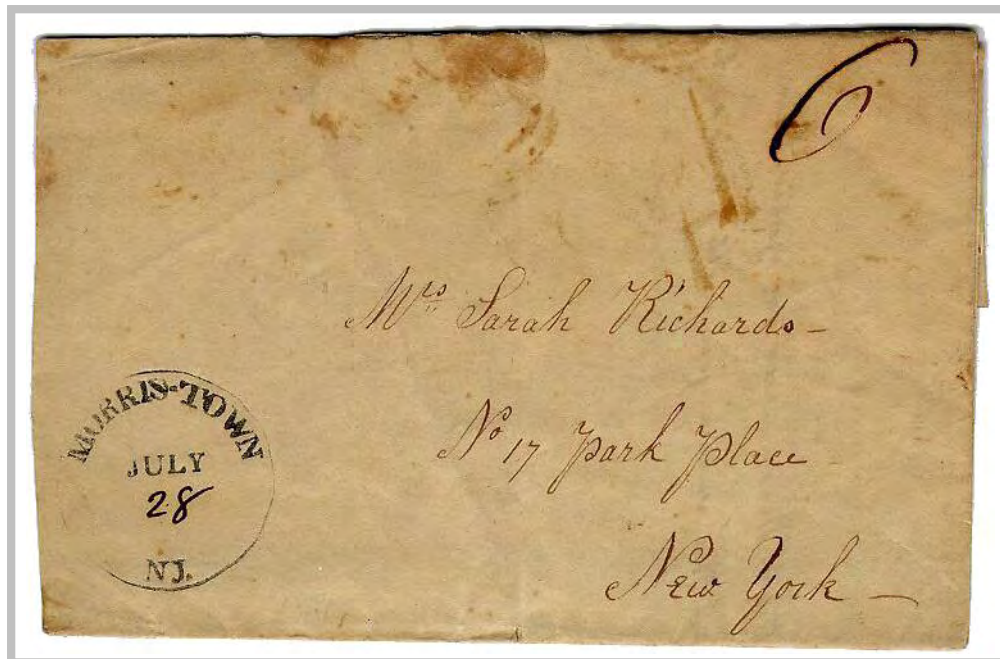 6
Mrs Sarah Richards -
No 17 Park Place
New York -
MORRIS-TOWN
JULY
28
NJ.